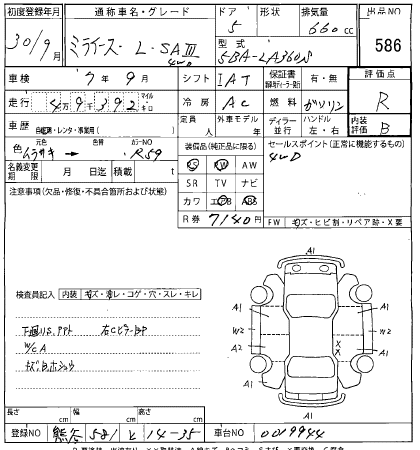 初度登録年月 通称車名・グレード ドア 形状 排気量 出品NO
30/9月 ミライース L・SAⅢ 4WD 5 660cc 586
型式 5BA-LA360S
車検 7年9月 シフト IAT 保証書 有・無 評価点
走行 4万9千392 マイル キロ 冷房 AC 燃料 ガソリン R
車歴 自家用・レンタ・事業用( ) 定員 人 外車モデル 年 ディーラー 並行 ハンドル 左・右 内装評価 B
色 元色 色替 カラーNO R59
装備品(純正品に限る) セールスポイント(正常に機能するもの)
名義変更期限 月 日迄 積載 t PS PW AW 4WD
注意事項(欠品・修復・不具合箇所および状態) SR TV ナビ
カワ エアB ABS
R券 7140円 FW キズ・ヒビ割・リペア跡・X要
検査員記入 内装 キズ・汚レ・コゲ・穴・スレ・キレ
下廻りS.アト 右CピラーBP
W/C A
A1
A1 A1
W2 W2
A1 A2
X
X
A1 A1
A1
長さ cm 幅 cm 高さ cm
登録NO 熊谷 581 と 14-35 車台NO 0019944